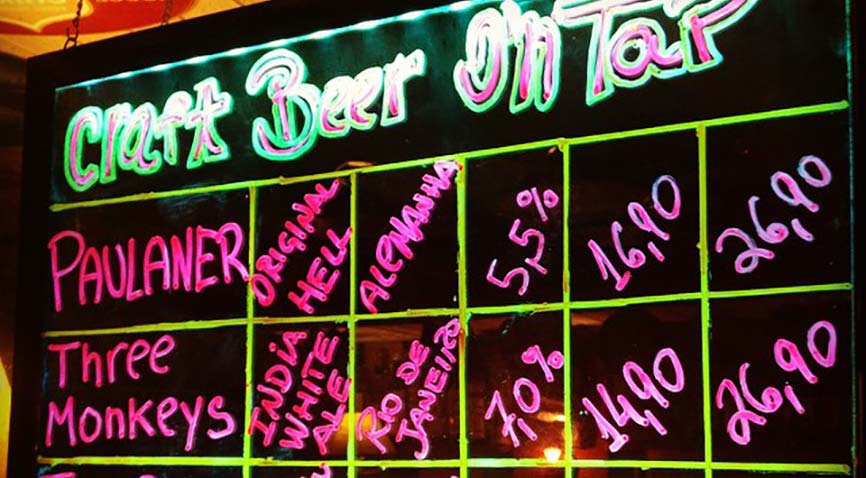 Craft Beer O'n Tap
PAULANER
ORIGINAL
HELL
ALEMANHA
5,5%
16,90
26,90
Three
Monkeys
INDIA
WHITE
ALE
RIO DE
JANEIRO
7,0%
14,90
26,90